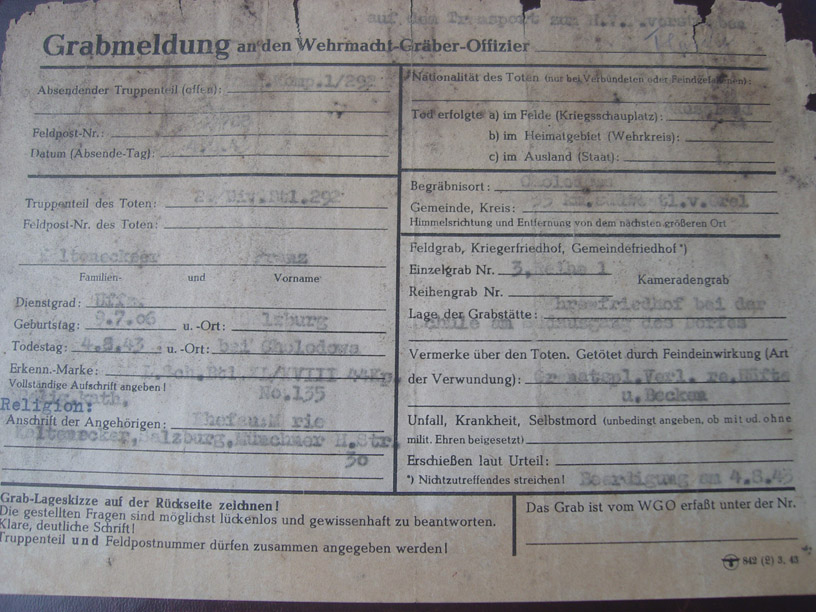 auf dem Transport zum H... verstorben
Grabmeldung an den Wehrmacht-Gräber-Offizier
Absendender Truppenteil (offen): Komp.1/292
Feldpost-Nr.:
Datum (Absende-Tag):
Truppenteil des Toten: 2. Div.Btl.292
Feldpost-Nr. des Toten:
Kalteneckeer Franz
Familien- und Vorname
Dienstgrad: Uffz.
Geburtstag: 9.7.06 u. -Ort: Salzburg
Todestag: 4.8.43 u. -Ort: bei Cholodowa
Erkenn.-Marke: L.Sch.Btl XL/XVIII 44Kp.
Vollständige Aufschrift angeben! No.135
Religion: kath.
Anschrift der Angehörigen: Ehefau:M rie
Kaltenecker,Salzburg,Münchner H.Str.
30
Grab-Lageskizze auf der Rückseite zeichnen!
Die gestellten Fragen sind möglichst lückenlos und gewissenhaft zu beantworten.
Klare, deutliche Schrift!
Truppenteil und Feldpostnummer dürfen zusammen angegeben werden!
Nationalität des Toten (nur bei Verbündeten oder Feindgefallenen):
Tod erfolgte a) im Felde (Kriegsschauplatz):
b) im Heimatgebiet (Wehrkreis):
c) im Ausland (Staat):
Begräbnisort:
Gemeinde, Kreis: 35 km südwestl.v.Orel
Himmelsrichtung und Entfernung von dem nächsten größeren Ort
Feldgrab, Kriegerfriedhof, Gemeindefriedhof*)
Einzelgrab Nr. 3,Reihe 1
Kameradengrab
Reihengrab Nr.
Lage der Grabstätte: Ehrenfriedhof bei der
Schule am Südausgang des Dorfes
Vermerke über den Toten. Getötet durch Feindeinwirkung (Art
der Verwundung): Granatspl.Verl. re.Hüfte
u.Becken
Unfall, Krankheit, Selbstmord (unbedingt angeben, ob mit od. ohne
milit. Ehren beigesetzt)
Erschießen laut Urteil:
*) Nichtzutreffendes streichen! Beerdigung am 4.8.43
Das Grab ist vom WGO erfaßt unter der Nr.
842 (2) 3. 43